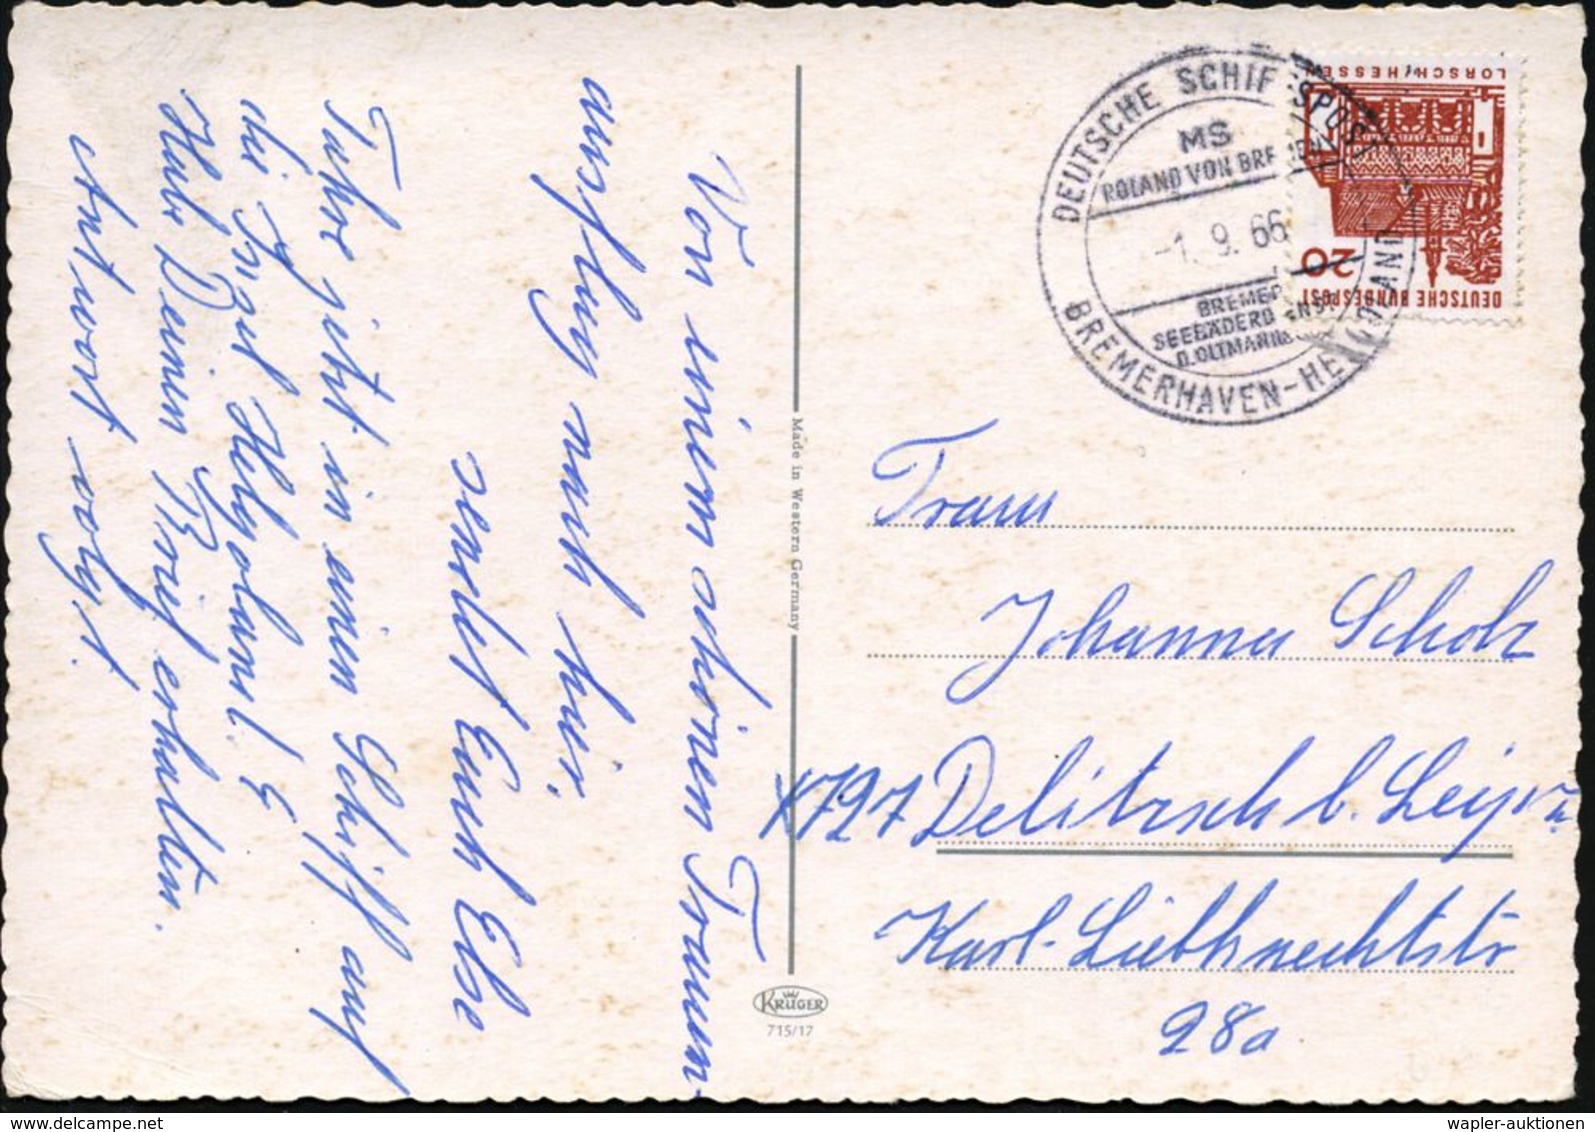 Von einem schönen Traum-
ausflug nach hier.
sendet Euch Else
Fahre jetzt in einen Schiff auf
die Inzel Helgoland!
Habe Deinen Brief erhalten.
Antwort volgt.
Made in Western Germany
KRÜGER
715/17
DEUTSCHE SCHIFFSPOST
MS
ROLAND VON BREMEN
-1. 9. 66
BREMER
SEEBÄDERDIENST
D. OLTMANN
BREMERHAVEN-HELGOLAND
DEUTSCHE BUNDESPOST
20
LORSCH/HESSEN
Frau
Johanna Scholz
X727 Delitzsch b. Leipzig
Karl-Liebknechtstr
28a
wapler-auktionen